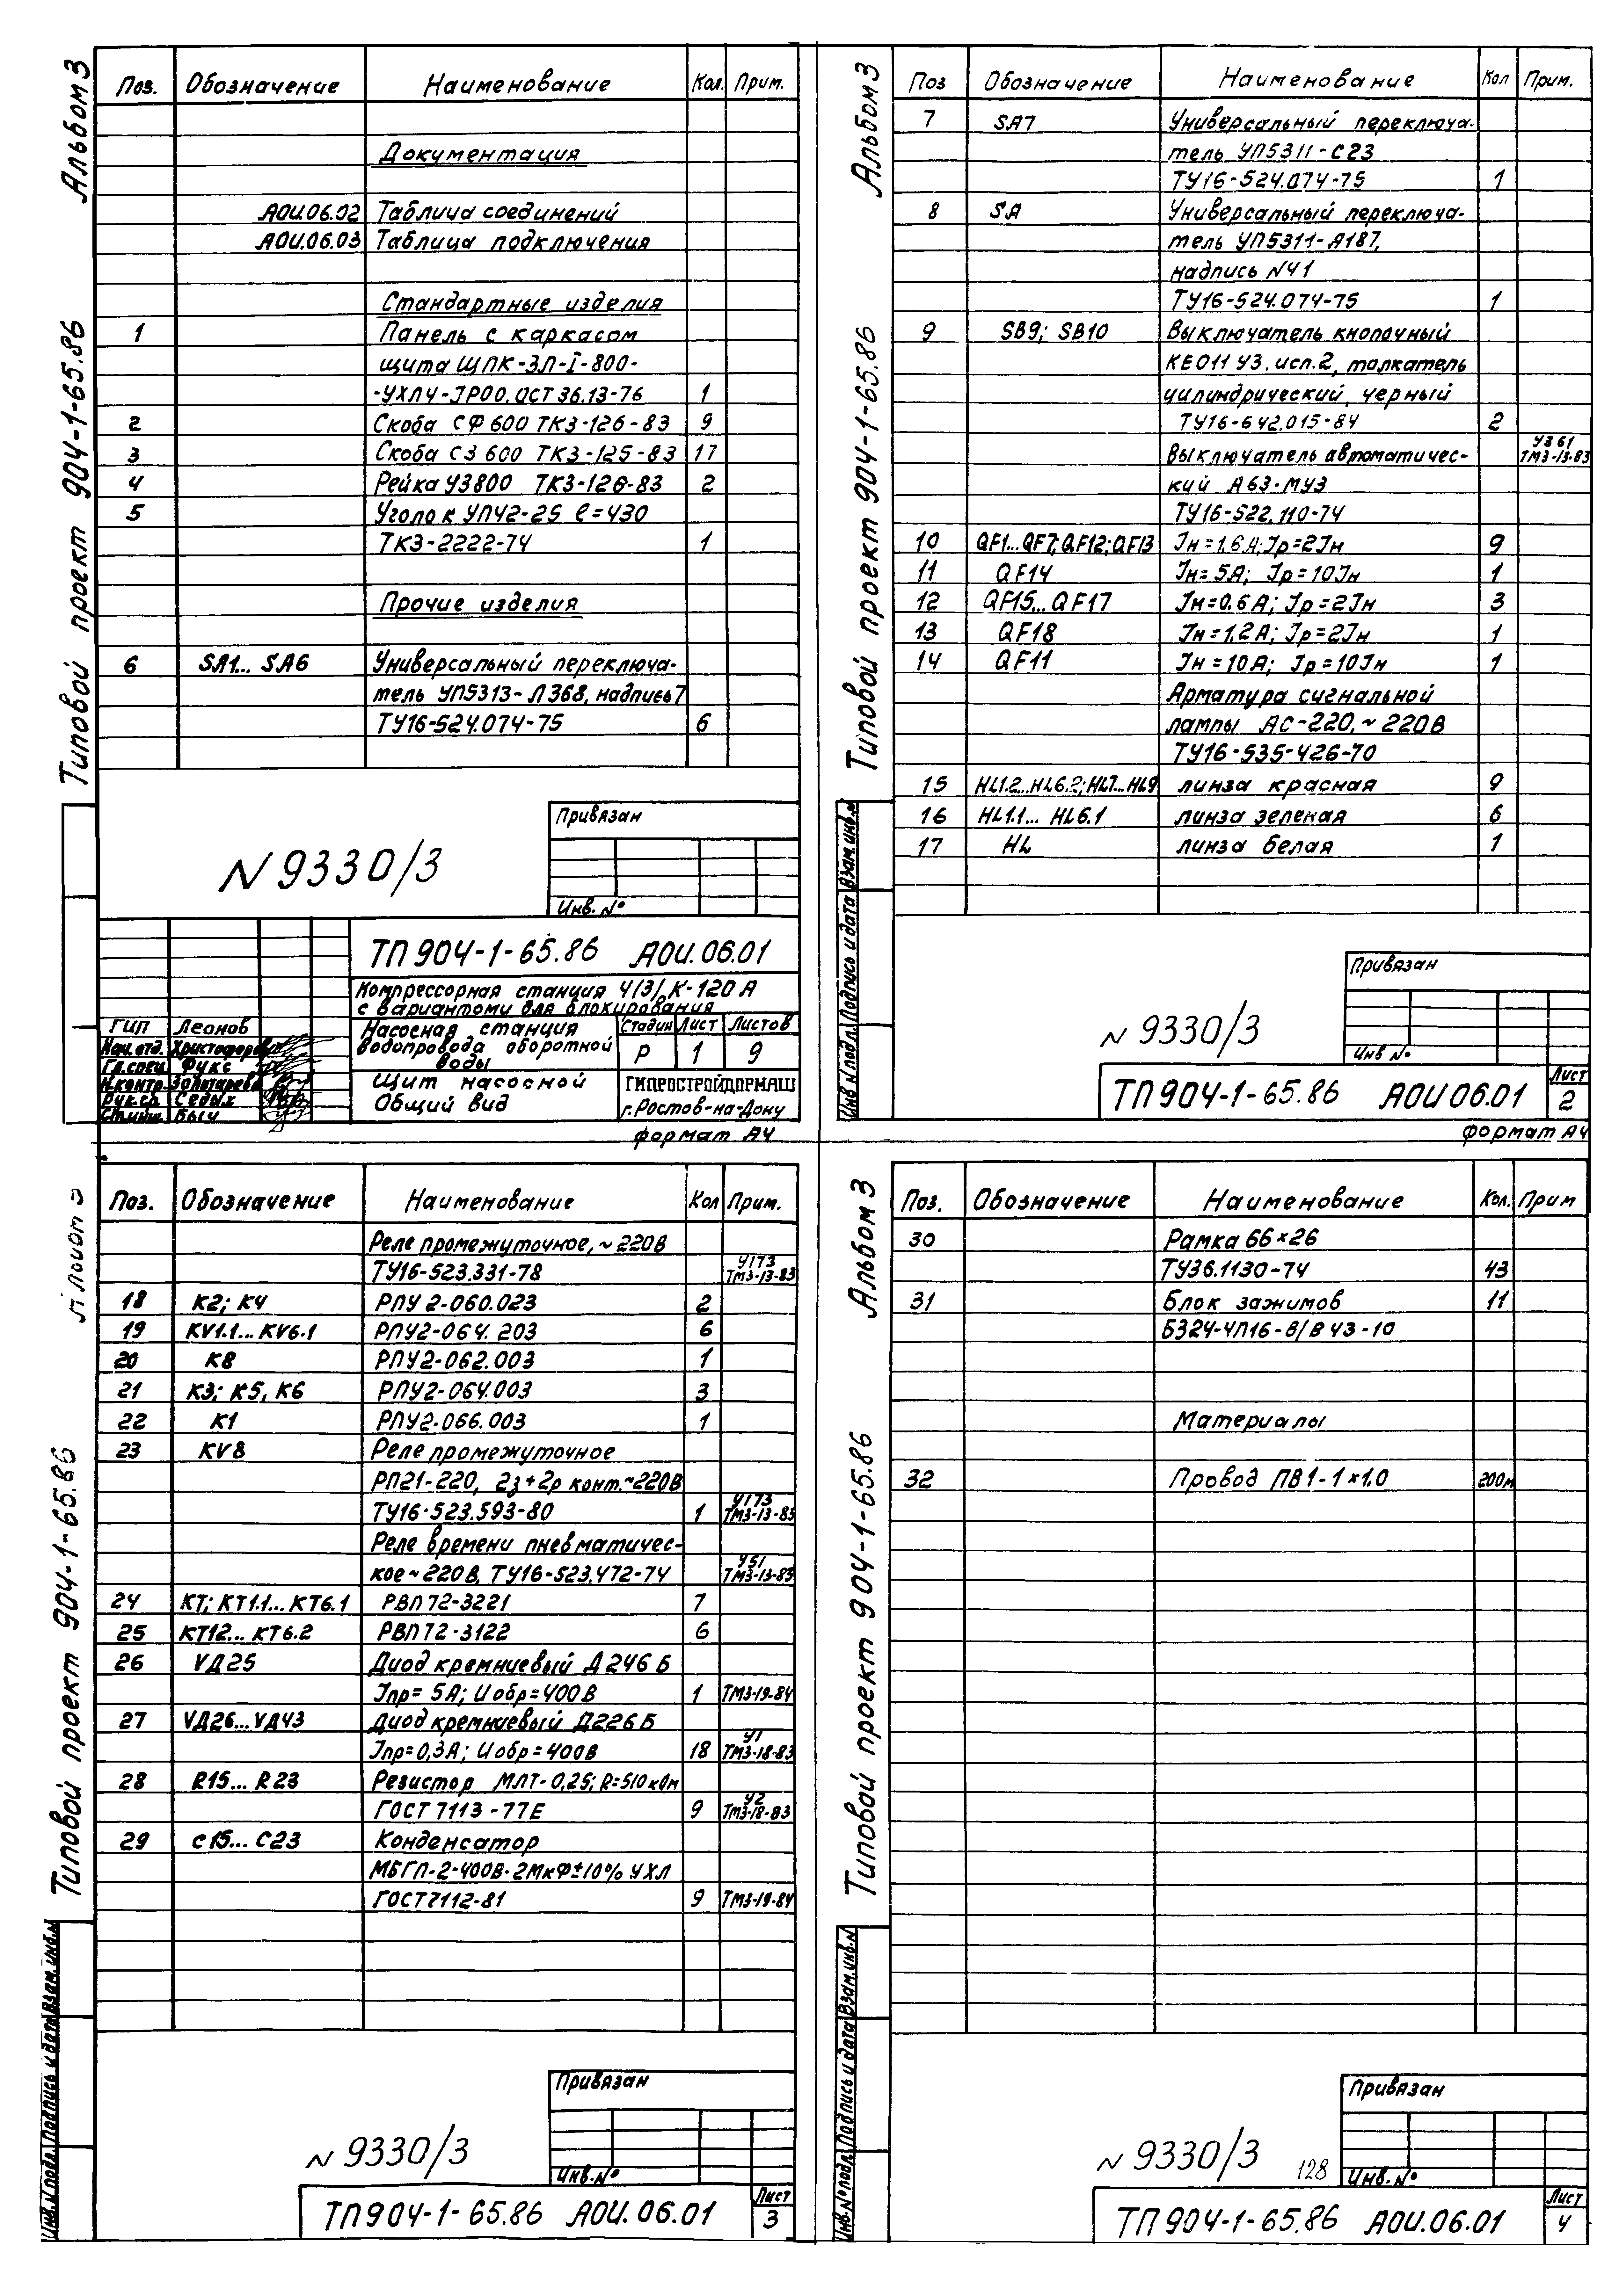 Альбом 3
Типовой проект 904-1-65.86
Поз. Обозначение Наименование Кол. Прим.
Документация
АОИ.06.02 Таблица соединений
АОИ.06.03 Таблица подключения
Стандартные изделия
1 Панель с каркасом
щита ЩПК-ЗЛ-I-800-
-УХЛ4-JP00.ОСТ 36.13-76 1
2 Скоба СФ 600 ТК3-126-83 9
3 Скоба СЗ 600 ТК3-125-83 17
4 Рейка У3800 ТК3-126-83 2
5 Уголок УП42-25 ℓ=430
ТК3-2222-74 1
Прочие изделия
6 SA1... SA6 Универсальный переключа-
тель УП5313-Л368, надпись 7
ТУ16-524.074-75 6
N 9330/3
Привязан
Инв. №
ТП 904-1-65.86 АОИ.06.01
Компрессорная станция 4(3) К-120 А
с вариантом для блокирования
ГИП Леонов
Нач. отд. Христофоров
Гл.спец Фукс
Н.контр. Золотарева
Рук.гр. Седых
Ст.инж. Быч
Насосная станция
водопровода оборотной
воды
Стадия Лист Листов
Р 1 9
Щит насосной
Общий вид
ГИПРОСТРОЙДОРМАШ
г.Ростов-на-Дону
формат А4
Альбом 3
Типовой проект 904-1-65.86
Поз Обозначение Наименование Кол Прим.
7 SA7 Универсальный переключа-
тель УП5311-С23
ТУ16-524.074-75 1
8 SA Универсальный переключа-
тель УП5311-А187,
надпись N41
ТУ16-524.074-75 1
9 SB9; SB10 Выключатель кнопочный
КЕ011 У3. исп.2, толкатель
цилиндрический, черный
ТУ16-642.015-84 2
Выключатель автоматичес- У361 ТМ3-13-83
кий А63-МУ3
ТУ16-522.110-74
10 QF1...QF7; QF12; QF13 Jн=1,6А; Jр=2Jн 9
11 QF14 Jн=5А; Jр=10Jн 1
12 QF15...QF17 Jн=0.6А; Jр=2Jн 3
13 QF18 Jн=1,2А; Jр=2Jн 1
14 QF11 Jн=10А; Jр=10Jн 1
Арматура сигнальной
лампы АС-220,~220В
ТУ16-535-426-70
15 HL1.2...HL6.2; HL7...HL9 линза красная 9
16 HL1.1... HL6.1 линза зеленая 6
17 HL линза белая 1
Инв N подл. Подпись и дата Взам.инв.N
Привязан
Инв №
N 9330/3
ТП 904-1-65.86 АОИ 06.01 Лист 2
формат А4
Типовой проект 904-1-65.86
Поз. Обозначение Наименование Кол Прим.
Реле промежуточное, ~220В
ТУ16-523.331-78 У173 ТМ3-13-83
18 К2; К4 РПУ 2-060.023 2
19 KV1.1... KV6.1 РПУ2-064. 203 6
20 К8 РПУ2-062.003 1
21 К3; К5, К6 РПУ2-064.003 3
22 К1 РПУ2-066.003 1
23 KV8 Реле промежуточное
РП21-220, 2з+2р конт.~220В
ТУ16-523.593-80 1 У173 ТМ3-13-83
Реле времени пневматичес-
кое ~220В, ТУ16-523.472-74 У51 ТМ3-13-83
24 КТ; КТ1.1... КТ6.1 РВП72-3221 7
25 КТ12... КТ6.2 РВП72-3122 6
26 VД25 Диод кремниевый Д246Б
Jпр= 5А; Uобр=400В 1 ТМ3-19-84
27 VД26...VД43 Диод кремниевый Д226Б
Jпр=0,3А; Uобр=400В 18 У1 ТМ3-18-83
28 R15... R23 Резистор МЛТ-0,25; R=510кОм
ГОСТ 7113-77Е 9 У2 ТМ3-18-83
29 С15... С23 Конденсатор
МБГП-2-400В-2МкФ±10% УХЛ
ГОСТ7112-81 9 ТМ3-19-84
Инв.N подл. Подпись и дата Взам.инв.N
Привязан
Инв.№
N 9330/3
ТП 904-1-65.86 АОИ.06.01 Лист 3
Альбом 3
Типовой проект 904-1-65.86
Поз. Обозначение Наименование Кол. Прим
30 Рамка 66×26
ТУ36.1130-74 43
31 Блок зажимов 11
БЗ24-4П16-В/В У3-10
Материалы
32 Провод ПВ1-1×1.0 200м
Инв.№ подл. Подпись и дата Взам.инв.N
Привязан
Инв.№
N 9330/3 128
ТП 904-1-65.86 АОИ.06.01 Лист 4